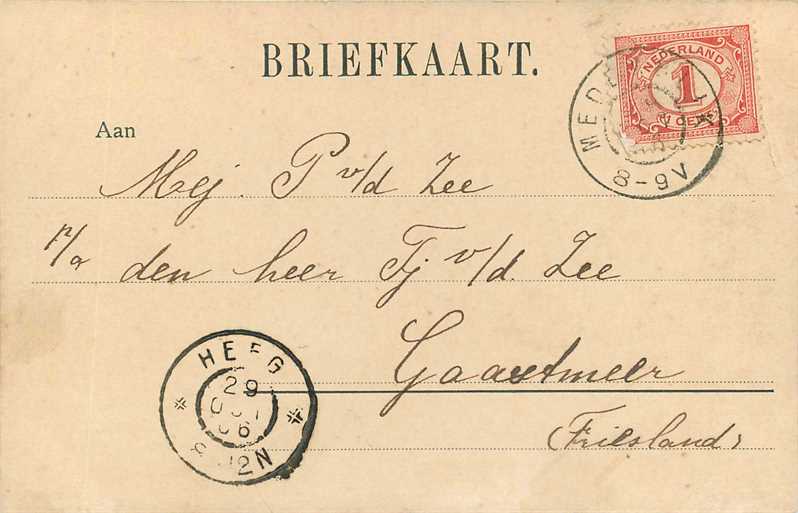 BRIEFKAART.
NEDERLAND
1
CENT
8-9V
Aan
Mej. P v/d Zee
p/a den heer Tj v/d. Zee
Gaastmeer
(Friesland)
HEEG
29
06
12N